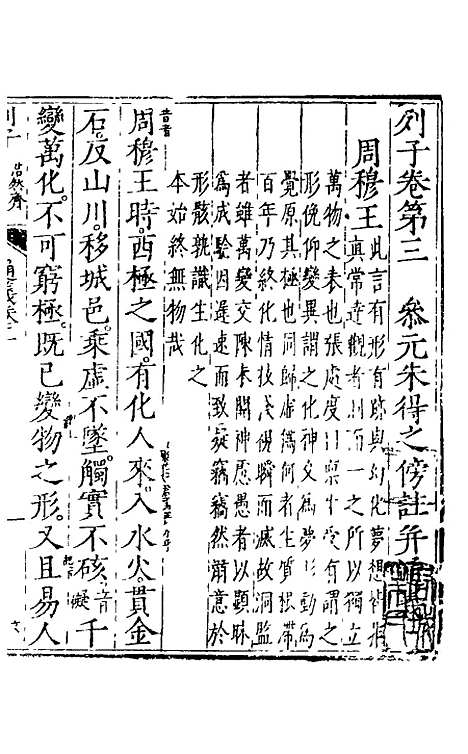 列子卷第三 叅元朱得之傍註并
周穆王
此言有形有跡與幻化夢想
真常達觀者 一之所以獨立
萬物之表也張處度曰稟生受有謂之
形俛仰變異謂之化神交為夢形動為
覺原其極也同歸虛偽何者生質根帶
百年乃終化情枝淺視瞬而滅故洞監
者雖萬變交陳未關神慮愚者以顯昧
為成驗因遲速而致疑竊竊然肅意於
形骸孰識生化之
本始終無物哉
昔者
周穆王時。西極之國。有化人來。入水火。貫金
石。反山川。移城邑。乘虛不墜。觸實不硋。音礙千
變萬化。不可窮極。既已變物之形。又且易人
列子 浩然齋 通義卷三